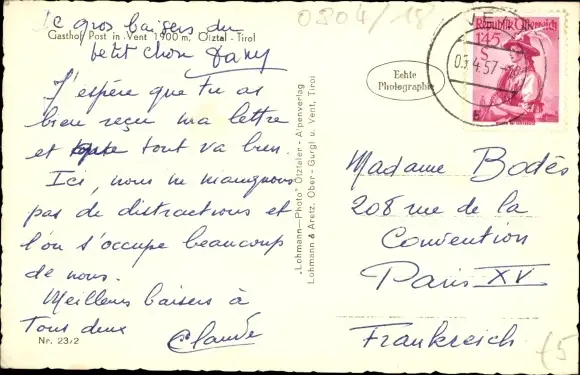 0804/18
de gros baisers du
Gasthof Post in Vent 1900 m, Ötztal - Tirol
petit chou Dany
J'espère que tu as
bien reçu ma lettre
et que tout va bien.
Ici, nous ne manquons
pas de distractions et
l'on s'occupe beaucoup
de nous.
Meilleurs baisers à
tous deux
Claude
Nr. 23/2
„Lohmann—Photo" Ötztaler - Alpenverlag
Lohmann & Aretz, Ober - Gurgl u. Vent, Tirol
Echte
Photographie
Republik Österreich
1.45
S
03.4.57
Madame Bodès
208 rue de la
Convention
Paris XV
Frankreich